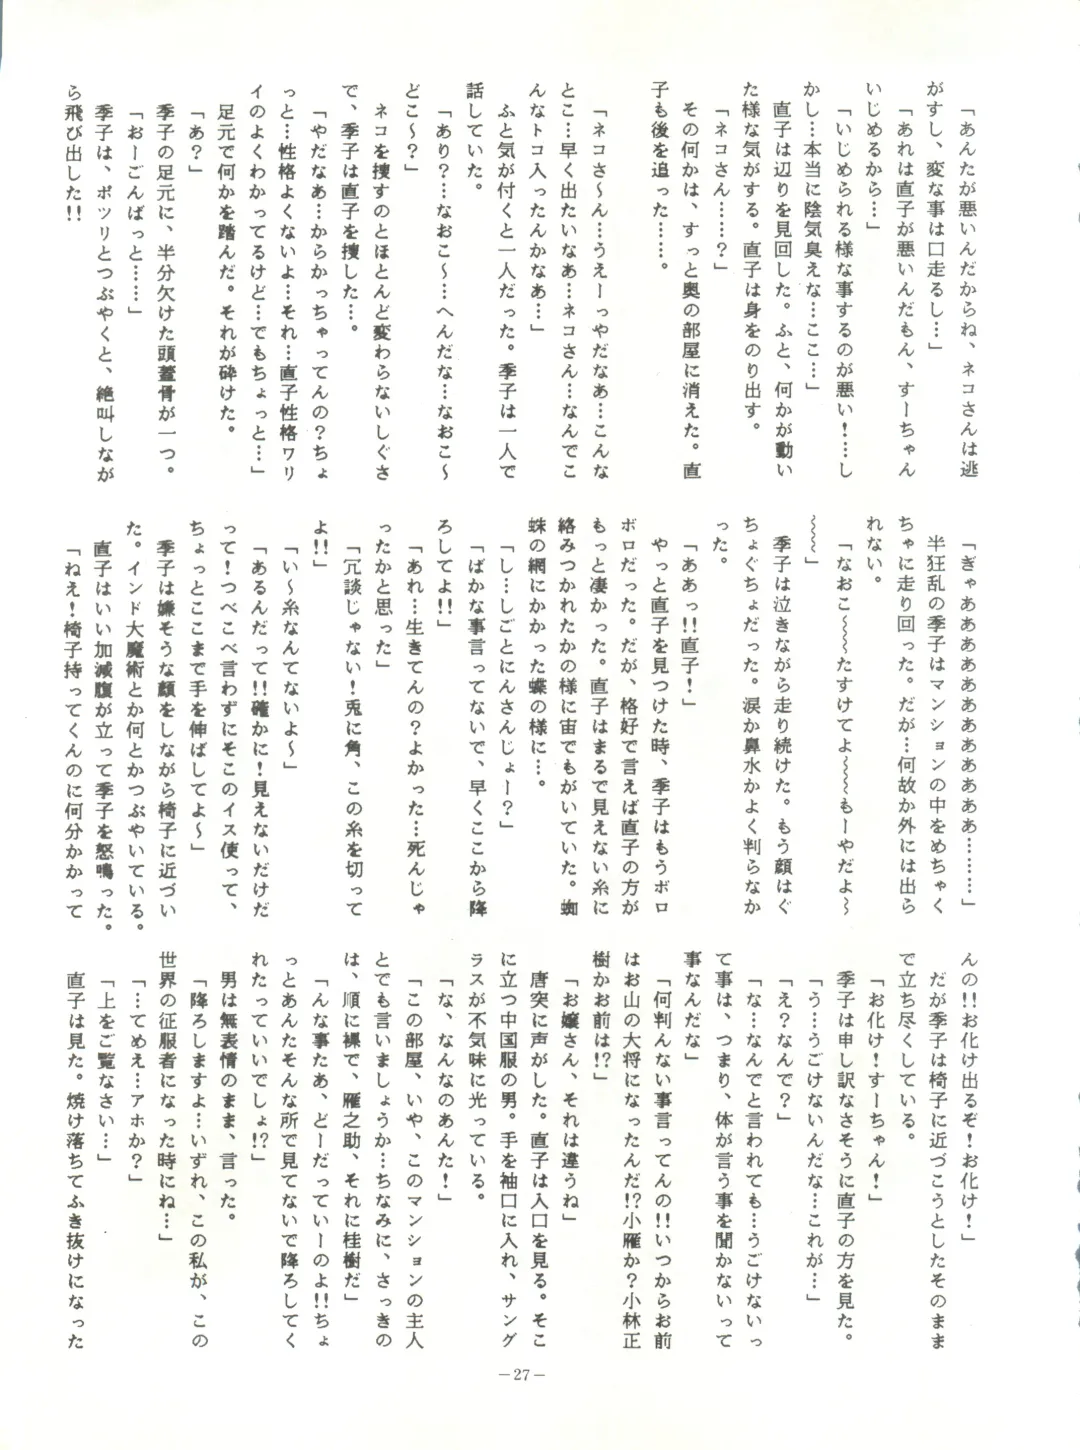 「あんたが悪いんだからね、ネコさんは逃
がすし、変な事は口走るし…」
「あれは直子が悪いんだもん、すーちゃん
いじめるから…」
「いじめられる様な事するのが悪い!…し
かし…本当に陰気臭えな…ここ…」
直子は辺りを見回した。ふと、何かが動い
た様な気がする。直子は身をのり出す。
「ネコさん……?」
その何かは、すっと奥の部屋に消えた。直
子も後を追った……。
「ネコさ〜ん…うえーっやだなあ…こんな
とこ…早く出たいなあ…ネコさん…なんでこ
んなトコ入ったんかなあ…」
ふと気が付くと一人だった。季子は一人で
話していた。
「あり?…なおこ〜…へんだな…なおこ〜
どこ〜?」
ネコを捜すのとほとんど変わらないしぐさ
で、季子は直子を捜した…。
「やだなぁ…からかっちゃってんの?ちょ
っと…性格よくないよ…それ…直子性格ワリ
イのよくわかってるけど…でもちょっと…」
足元で何かを踏んだ。それが砕けた。
「あ?」
季子の足元に、半分欠けた頭蓋骨が一つ。
「おーごんばっと……」
季子は、ボツリとつぶやくと、絶叫しなが
ら飛び出した!!
「ぎゃああああああああああああ………」
半狂乱の季子はマンションの中をめちゃく
ちゃに走り回った。だが…何故か外には出ら
れない。
「なおこ〜〜〜たすけてよ〜〜〜もーやだよ〜
〜〜〜」
季子は泣きながら走り続けた。もう顔はぐ
ちょぐちょだった。涙か鼻水かよく判らなか
った。
「ああっ!!直子!」
やっと直子を見つけた時、季子はもうボロ
ボロだった。だが、格好で言えば直子の方が
もっと凄かった。直子はまるで見えない糸に
絡みつかれたかの様に宙でもがいていた。蜘
蛛の網にかかった蝶の様に…。
「し…しごとにんさんじょー?」
「ばかな事言ってないで、早くここから降
ろしてよ!!」
「あれ…生きてんの?よかった…死んじゃ
ったかと思った」
「冗談じゃない!兎に角、この糸を切って
よ!!」
「い〜糸なんてないよ〜」
「あるんだって!!確かに!見えないだけだ
って!つべこべ言わずにそこのイス使って、
ちょっとここまで手を伸ばしてよ〜」
季子は嫌そうな顔をしながら椅子に近づい
た。インド大魔術とか何とかつぶやいている。
直子はいい加減腹が立って季子を怒鳴った。
「ねえ!椅子持ってくんのに何分かかって
んの!!お化け出るぞ!お化け!」
だが季子は椅子に近づこうとしたそのまま
で立ち尽くしている。
「お化け!すーちゃん!」
季子は申し訳なさそうに直子の方を見た。
「う…うごけないんだな…これが…」
「え?なんで?」
「な…なんでと言われても…うごけないっ
て事は、つまり、体が言う事を聞かないって
事なんだな」
「何判んない事言ってんの!!いつからお前
はお山の大将になったんだ!?小雁か?小林正
樹かお前は!?」
「お嬢さん、それは違うね」
唐突に声がした。直子は入口を見る。そこ
に立つ中国服の男。手を袖口に入れ、サング
ラスが不気味に光っている。
「な、なんなのあんた!」
「この部屋、いや、このマンションの主人
とでも言いましょうか…ちなみに、さっきの
は、順に裸で、雁之助、それに桂樹だ」
「んな事たあ、どーだっていーのよ!!ちょ
っとあんたそんな所で見てないで降ろしてく
れたっていいでしょ!?」
男は無表情のまま、言った。
「降ろしますよ…いずれ、この私が、この
世界の征服者になった時にね…」
「…てめえ…アホか?」
「上をご覧なさい…」
直子は見た。焼け落ちてふき抜けになった
—27—